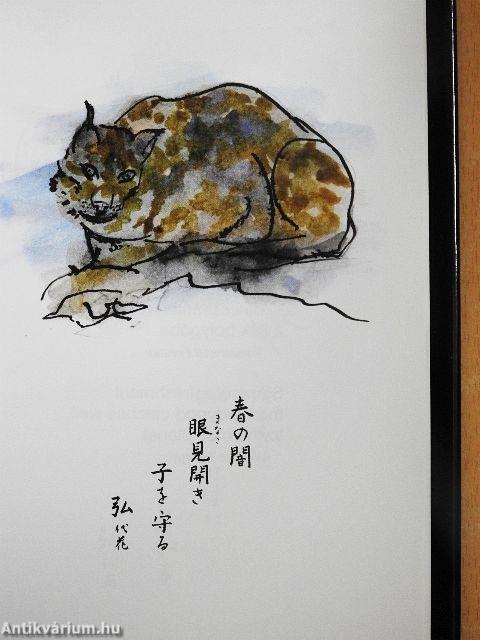 春の闇
眼見開き
まなこ
子を守る
弘代花
Antikvárium.hu